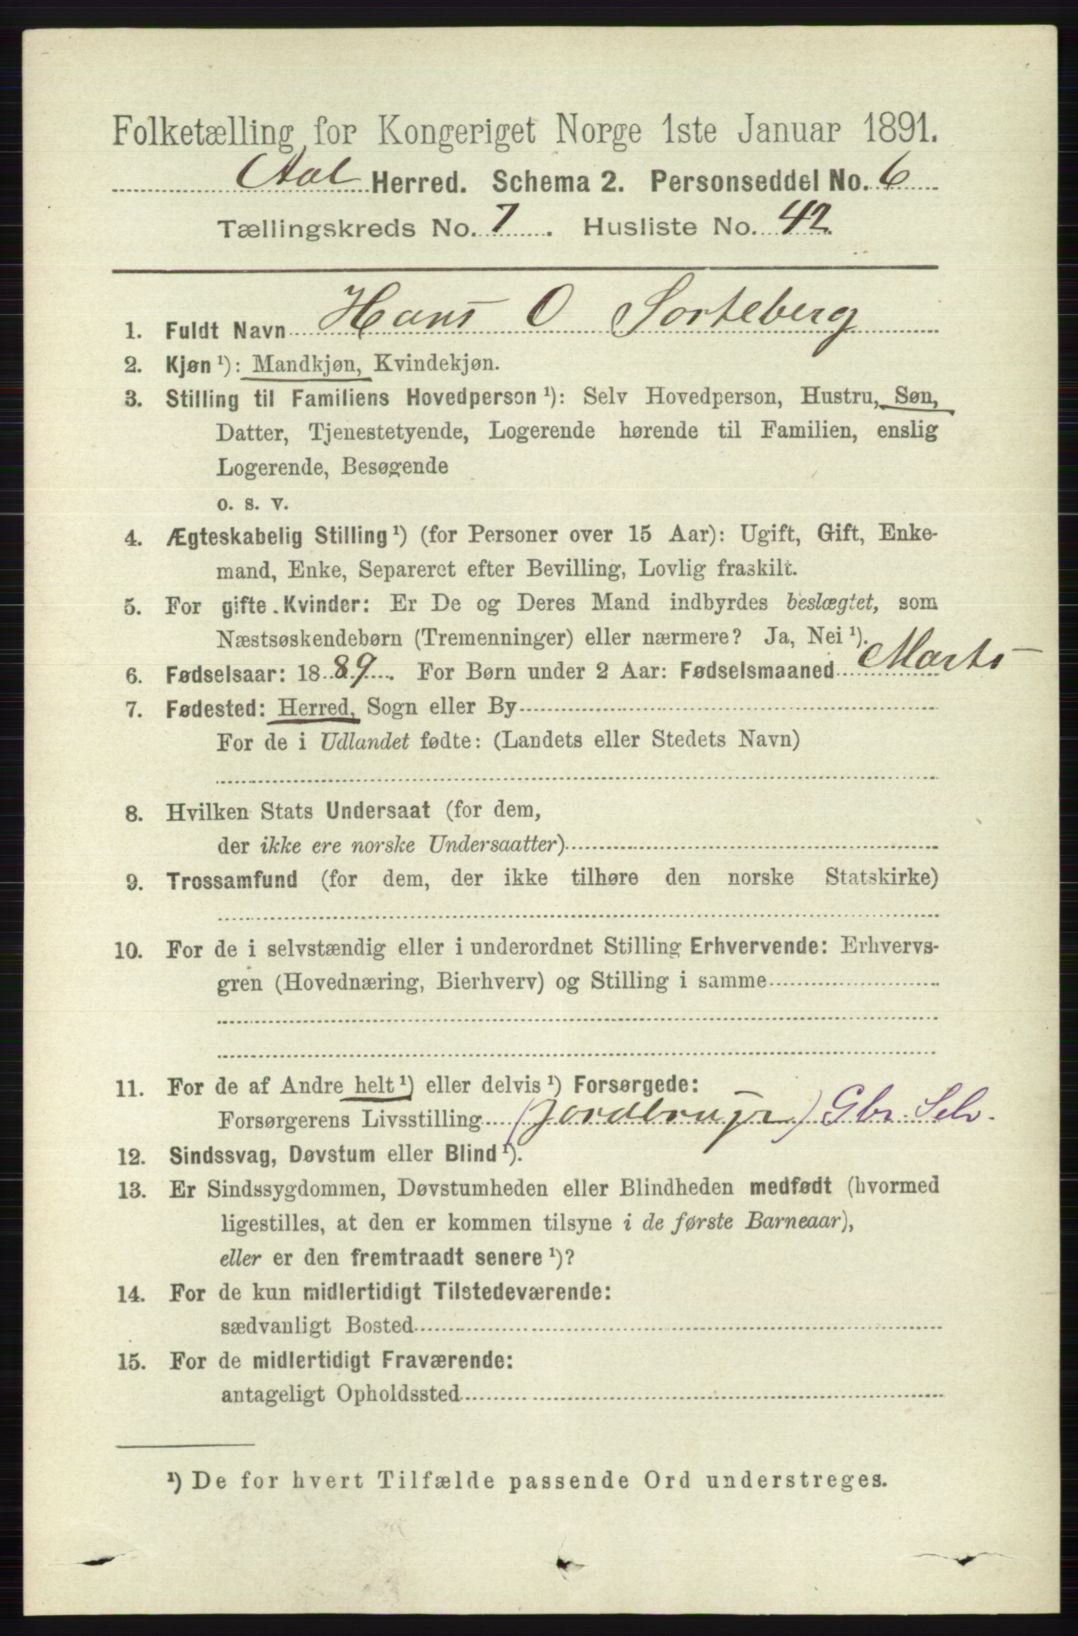 Folketælling for Kongeriget Norge 1ste Januar 1891.
Aal Herred. Schema 2. Personseddel No. 6
Tællingskreds No. 7. Husliste No. 42.
1. Fuldt Navn Hans O Sorteberg
2. Kjøn ¹): Mandkjøn, Kvindekjøn.
3. Stilling til Familiens Hovedperson ¹): Selv Hovedperson, Hustru, Søn,
Datter, Tjenestetyende, Logerende hørende til Familien, enslig
Logerende, Besøgende
o. s. v.
4. Ægteskabelig Stilling ¹) (for Personer over 15 Aar): Ugift, Gift, Enke-
mand, Enke, Separeret efter Bevilling, Lovlig fraskilt.
5. For gifte Kvinder: Er De og Deres Mand indbyrdes beslægtet, som
Næstsøskendebørn (Tremenninger) eller nærmere? Ja, Nei ¹).
6. Fødselsaar: 1889. For Børn under 2 Aar: Fødselsmaaned Marts
7. Fødested: Herred, Sogn eller By
For de i Udlandet fødte: (Landets eller Stedets Navn)
8. Hvilken Stats Undersaat (for dem,
der ikke ere norske Undersaatter)
9. Trossamfund (for dem, der ikke tilhøre den norske Statskirke)
10. For de i selvstændig eller i underordnet Stilling Erhvervende: Erhvervs-
gren (Hovednæring, Bierhverv) og Stilling i samme
11. For de af Andre helt ¹) eller delvis ¹) Forsørgede:
Forsørgerens Livsstilling (Jordbruger) Gbr. Selv.
12. Sindssvag, Døvstum eller Blind ¹).
13. Er Sindssygdommen, Døvstumheden eller Blindheden medfødt (hvormed
ligestilles, at den er kommen tilsyne i de første Barneaar),
eller er den fremtraadt senere ¹)?
14. For de kun midlertidigt Tilstedeværende:
sædvanligt Bosted
15. For de midlertidigt Fraværende:
antageligt Opholdssted
¹) De for hvert Tilfælde passende Ord understreges.